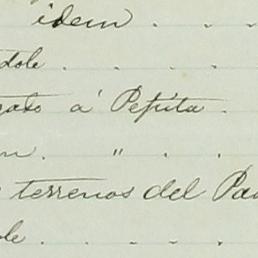 idem . . .
dole . . . .
gato á Pepita .
m. " . .
terrenos del Pa
ole . . . . .